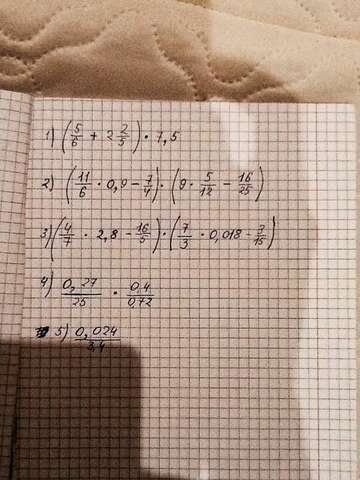 1) (5/6 + 2 2/5) · 7,5
2) (11/6 · 0,9 - 7/4) · (9 · 5/12 - 16/25)
3) (4/7 · 2,8 - 16/5) · (7/3 · 0,018 - 7/15)
4) 0,27/25 · 0,4/0,72
5) 0,024/3,4